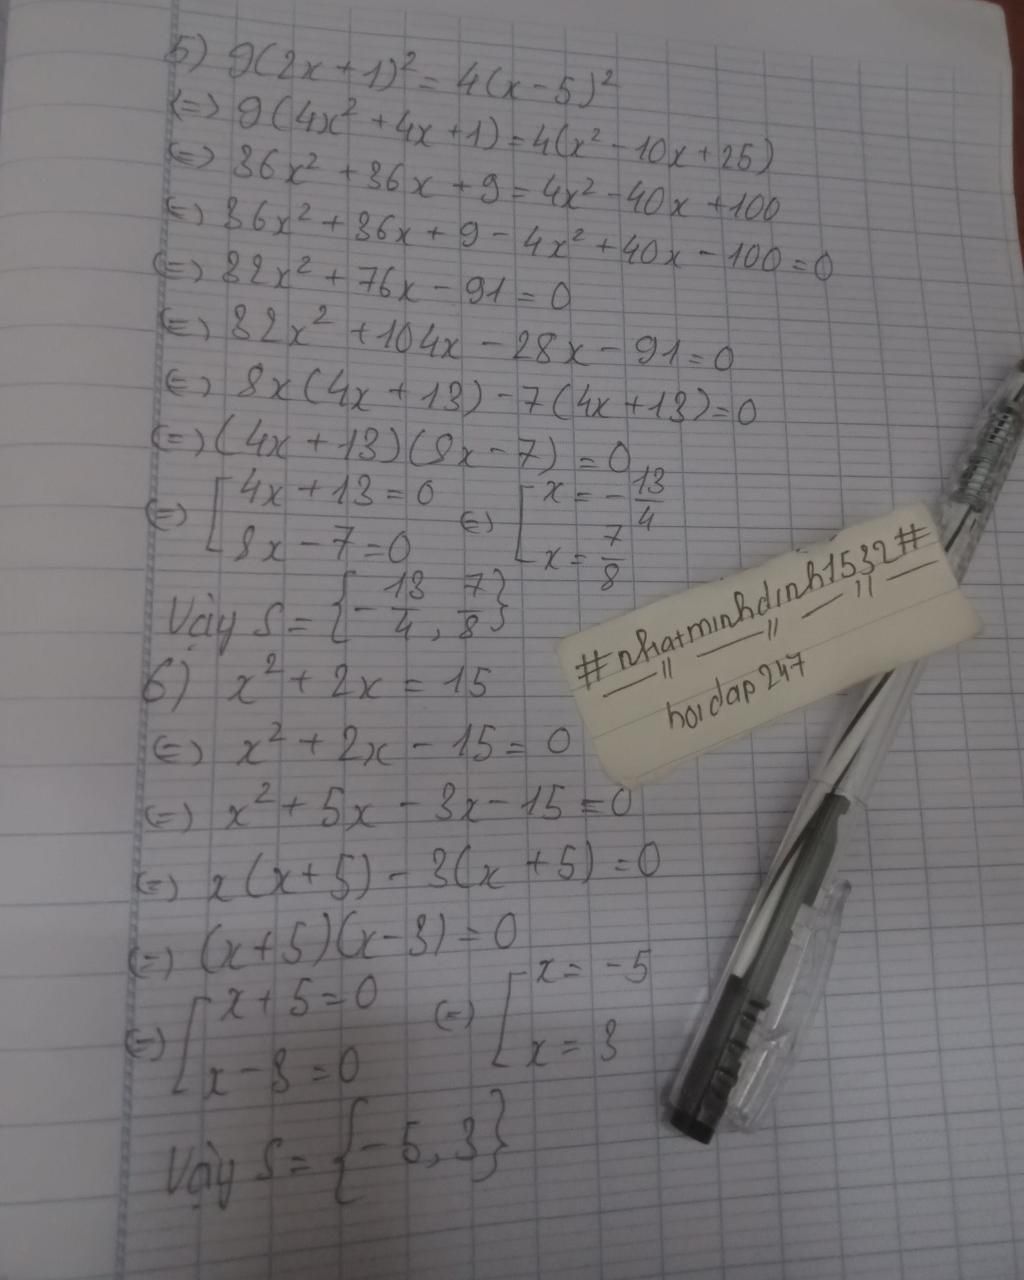 5) 9(2x + 1)² = 4(x - 5)²
(=) 9(4x² + 4x + 1) = 4(x² - 10x + 25)
(=) 36x² + 36x + 9 = 4x² - 40x + 100
(=) 36x² + 36x + 9 - 4x² + 40x - 100 = 0
(=) 32x² + 76x - 91 = 0
(=) 32x² + 104x - 28x - 91 = 0
(=) 8x(4x + 13) - 7(4x + 13) = 0
(=) (4x + 13)(8x - 7) = 0
(=) [ 4x + 13 = 0 (=) [ x = -13/4
8x - 7 = 0 x = 7/8
Vậy S = {-13/4, 7/8}
6) x² + 2x = 15
(=) x² + 2x - 15 = 0
(=) x² + 5x - 3x - 15 = 0
(=) x(x + 5) - 3(x + 5) = 0
(=) (x + 5)(x - 3) = 0
(=) [ x + 5 = 0 (=) [ x = -5
x - 3 = 0 x = 3
Vậy S = {-5, 3}
#nhatminhdinh1532#
hoidap247